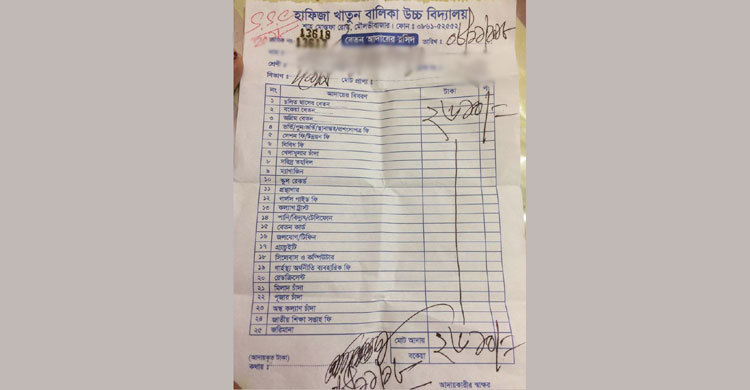 S.S.C
হাফিজা খাতুন বালিকা উচ্চ বিদ্যালয়
শাহ মোস্তফা রোড, মৌলভীবাজার। ফোন : ০৮৬১-৫২৫৫২
13618
বেতন আদায়ের রসিদ
তারিখ :
শ্রেণী :
বিভাগ :
মোট প্রাপ্য :
নং আদায়ের বিবরণ টাকা
১ চলিত মাসের বেতন
২ বকেয়া বেতন
৩ অগ্রিম বেতন
৪ ভর্তি/পুনঃভর্তি/স্থানান্তর/প্রশংসাপত্র ফি
৫ সেশন ফি/উন্নয়ন ফি
৬ বিবিধ ফি
৭ খেলাধুলার চাঁদা
৮ দরিদ্র তহবিল
৯ ম্যাগাজিন
১০ স্কুল রেকর্ড
১১ গ্রন্থাগার
১২ গার্লস গাইড ফি
১৩ কল্যাণ ট্রাস্ট
১৪ পানি/বিদ্যুৎ/টেলিফোন
১৫ বেতন কার্ড
১৬ জলযোগ/টিফিন
১৭ গ্র্যাচুইটি
১৮ সিলেবাস ও কম্পিউটার
১৯ গার্হস্থ্য অর্থনীতি ব্যবহারিক ফি
২০ রেডক্রিসেন্ট
২১ মিলাদ চাঁদা
২২ পূজার চাঁদা
২৩ অন্ধ কল্যাণ চাঁদা
২৪ জাতীয় শিক্ষা সপ্তাহ ফি
২৫ জরিমানা
মোট আদায়
বকেয়া
(আদায়কৃত টাকা)
কথায় :
আদায়কারীর স্বাক্ষর